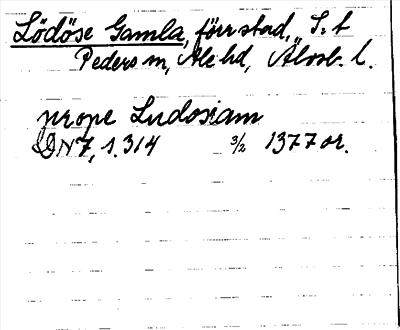 Lödöse Gamla, förr stad, S:t
Peders sn, Ale hd, Älvsb. l.
prope Ludosiam
DN 7, s. 314 3/2 1377 or.